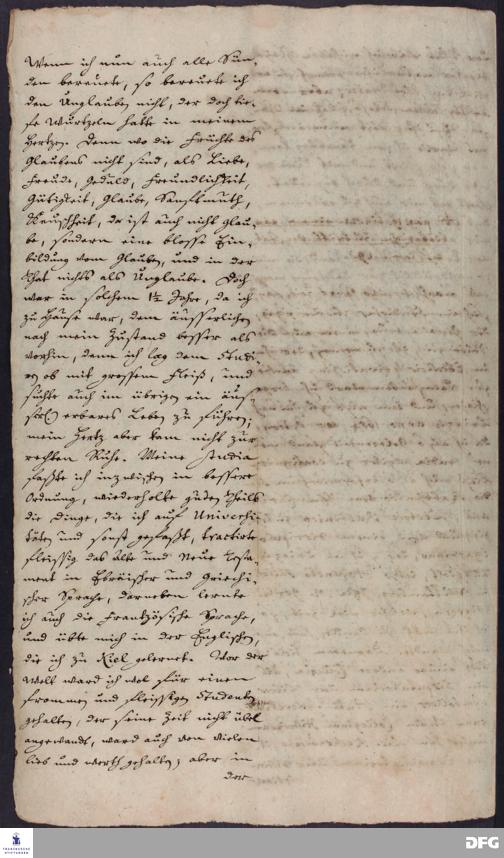 Wenn ich nun auch alle Sün-
den bereuete, so bereuete ich
den Unglauben nicht, der doch tie-
fe Wurtzeln hatte in meinem
Hertzen. Denn wo die Früchte des
Glaubens nicht sind, als Liebe,
Freude, Geduld, Freundlichkeit,
Gütigkeit, Glaube, Sanftmuth,
Keuschheit, da ist auch nicht Glau-
be, sondern eine blosse Ein-
bildung vom Glauben, und in der
That nichts als Unglaube. Doch
war in solchem 1½ Jahre, da ich
zu Hause war, dem äusserlichen
nach mein Zustand besser als
vorhin, denn ich lag dem Studi-
ren ob mit grossem Fleiß, und
suchte auch im übrigen ein äus-
serl. erbares Leben zu führen;
mein Hertz aber kam nicht zur
rechten Ruhe. Meine studia
faßte ich inzwischen in bessere
Ordnung, wiederholte guten Theils
die Dinge, die ich auf Universi-
täten und sonst gefaßt, tractirte
fleissig das Alte und Neue Testa-
ment in Ebräischer und Griechi-
scher Sprache, darneben lernte
ich auch die Frantzösische Sprache,
und übte mich in der Englischen,
die ich zu Kiel gelernet. Vor der
Welt ward ich wol für einen
frommen und fleissigen Studenten
gehalten, der seine Zeit nicht übel
angewandt, ward auch von vielen
lieb und werth gehalten; aber in
der
FRANCKESCHE STIFTUNGEN
DFG